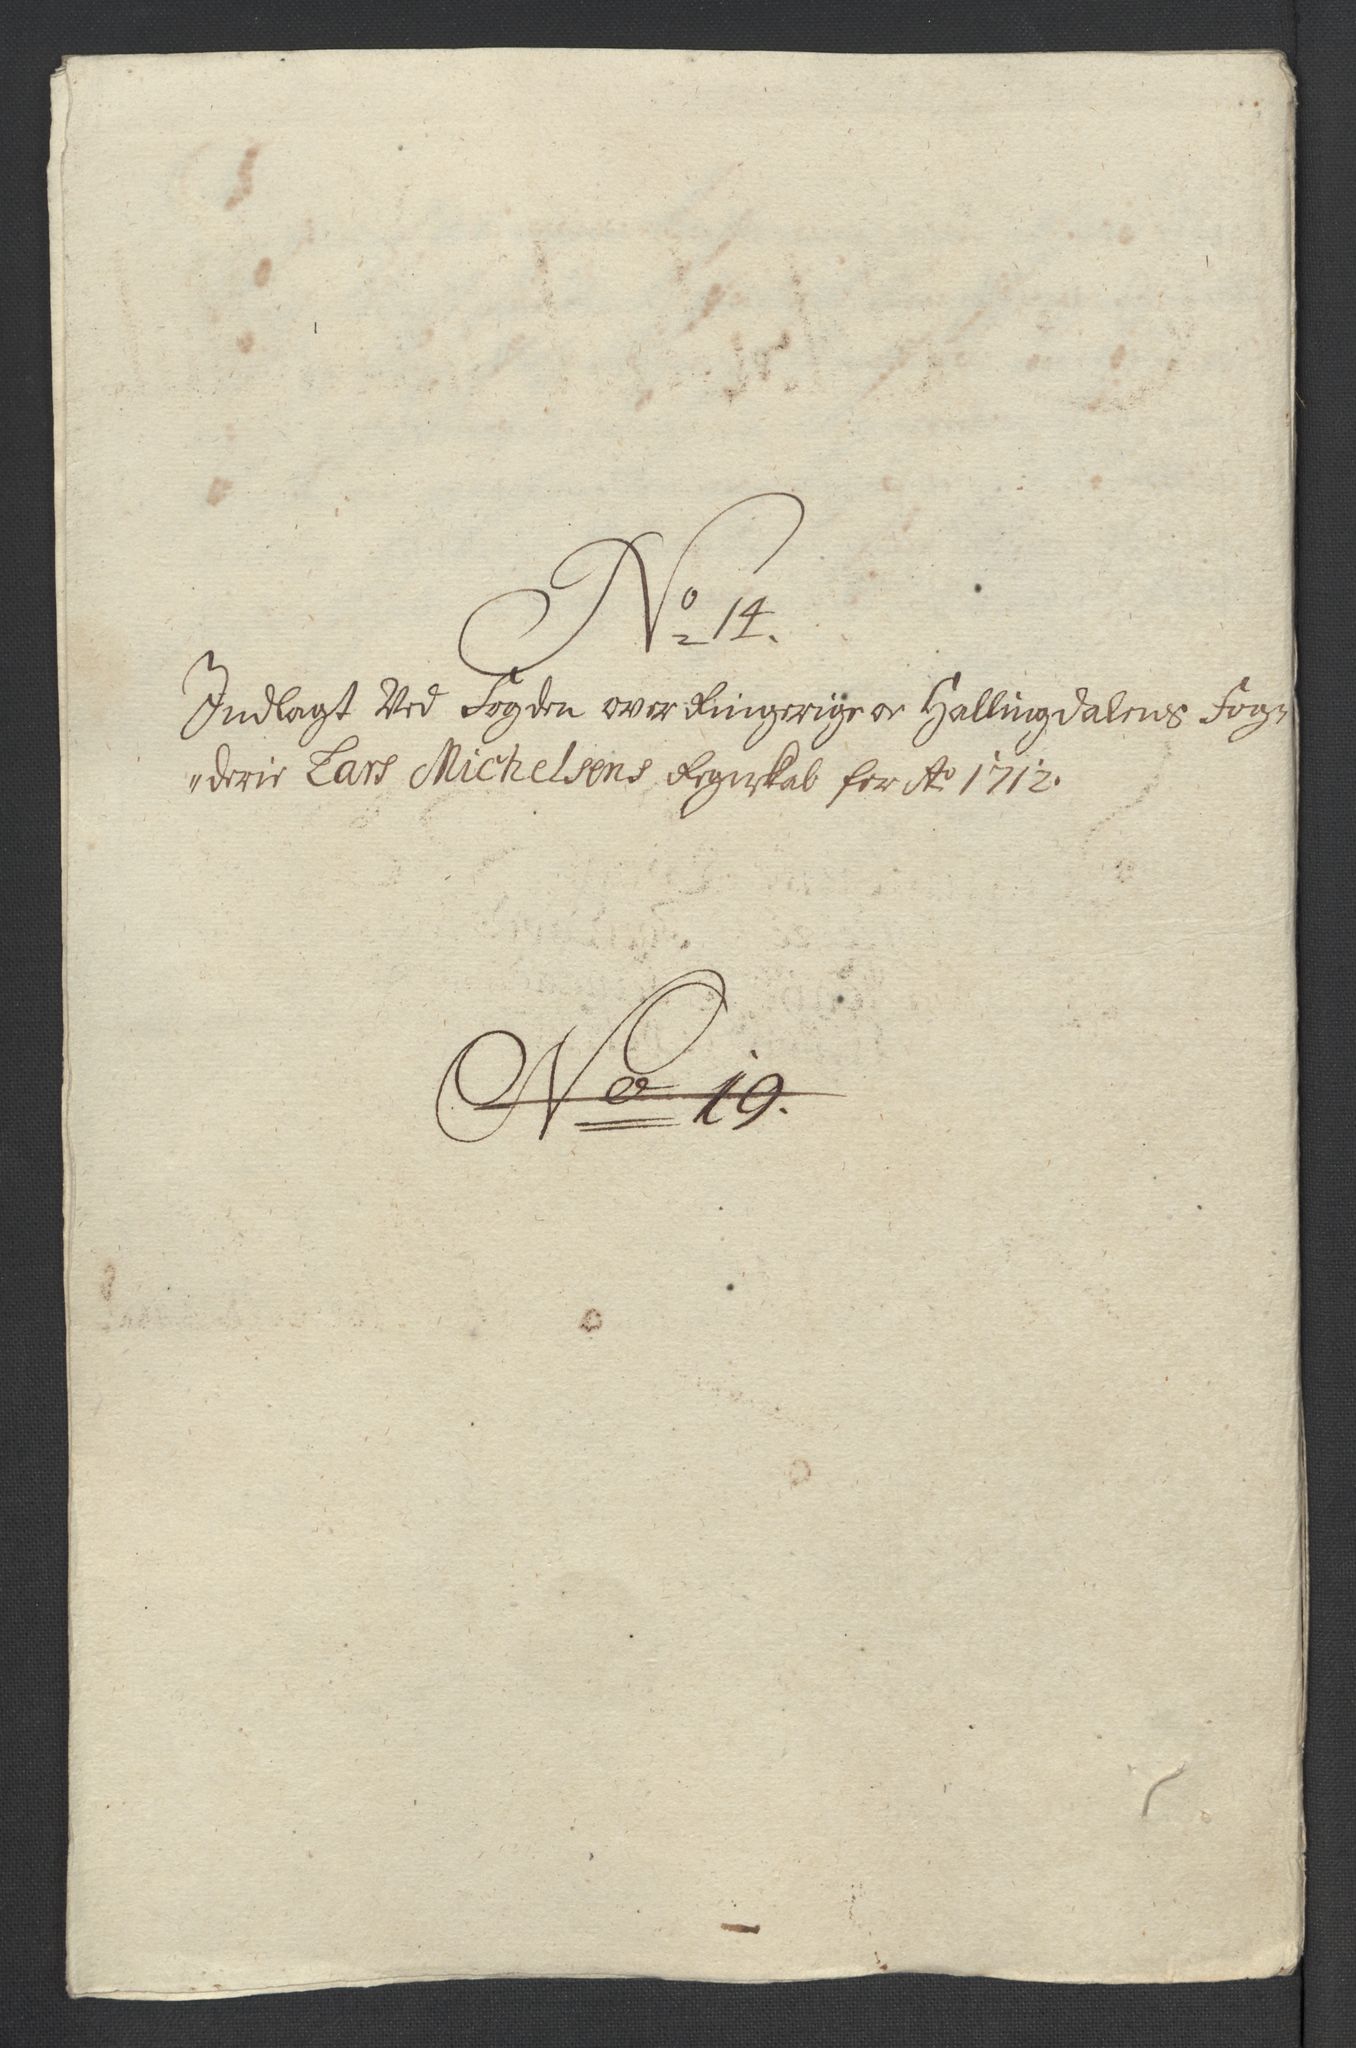 No 14.
Indlagt Ved Fogden over Ringerige oc Hallingdalens Fog=
"derie Lars Michelsens Regnskab for Ao 1712.
No 19.